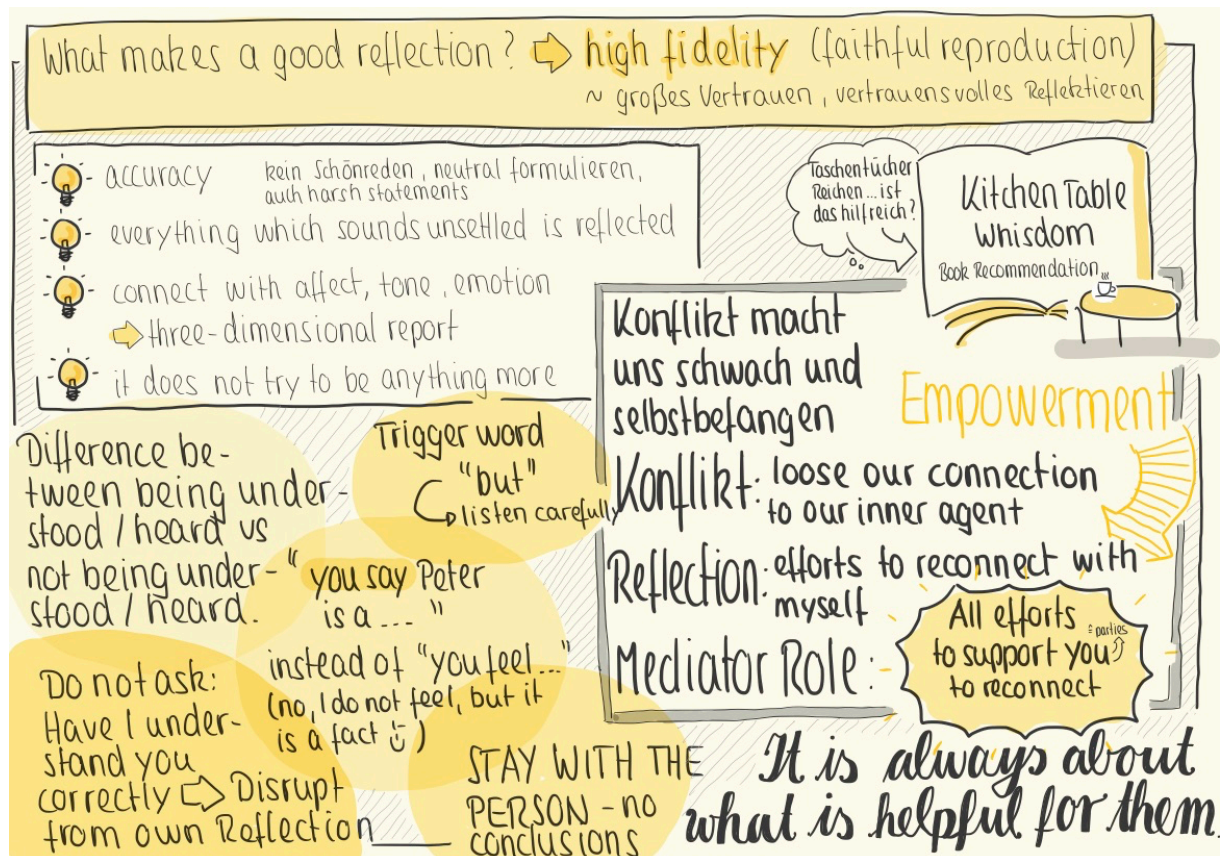 What makes a good reflection? ⇨ high fidelity (faithful reproduction)
~ großes Vertrauen, vertrauensvolles Reflektieren
- accuracy kein Schönreden, neutral formulieren,
auch harsh statements
- everything which sounds unsettled is reflected
- connect with affect, tone, emotion
⇨ three-dimensional report
- it does not try to be anything more
Taschentücher
Reichen... ist
das hilfreich?
Kitchen Table
Whisdom
Book Recommendation
Konflikt macht
uns schwach und
selbstbefangen
Empowerment
Konflikt: loose our connection
to our inner agent
Reflection: efforts to reconnect with
myself
Mediator Role:
All efforts
to support you
≙ parties
to reconnect
Difference be-
tween being under-
stood / heard vs
not being under-
stood / heard.
Trigger word
"but"
listen carefully
"you say Peter
is a ... "
instead of "you feel..."
(no, I do not feel, but it
is a fact)
Do not ask:
Have I under-
stand you
correctly ⇨ Disrupt
from own Reflection
STAY WITH THE
PERSON - no
conclusions
It is always about
what is helpful for them.